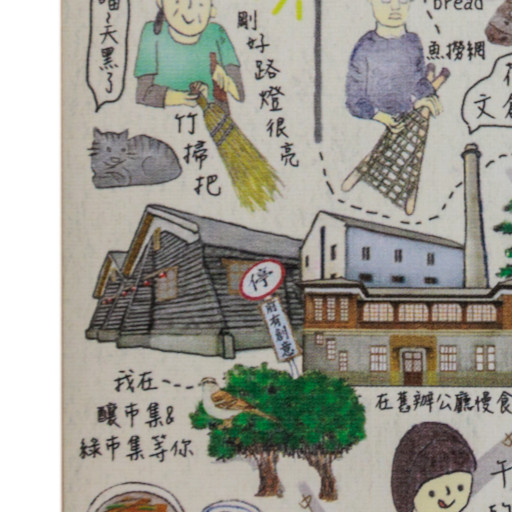 喵~天黑了
剛好路燈很亮
竹掃把
bread
魚撈網
文
停
前有創意
我在
釀市集&
綠市集等你
在舊辦公廳慢食
午